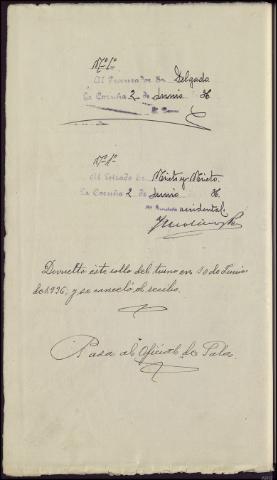 Al Procurador Sr. Delgado
La Coruña 2 de Junio 36.
Al Letrado Sr. Nieto y Nieto.
La Coruña 2 de Junio 36.
accidental.
Devuelto este rollo del turno en 10 de Junio
de 1.936, y se canceló el recibo.
Pasa al Oficial de Sala.